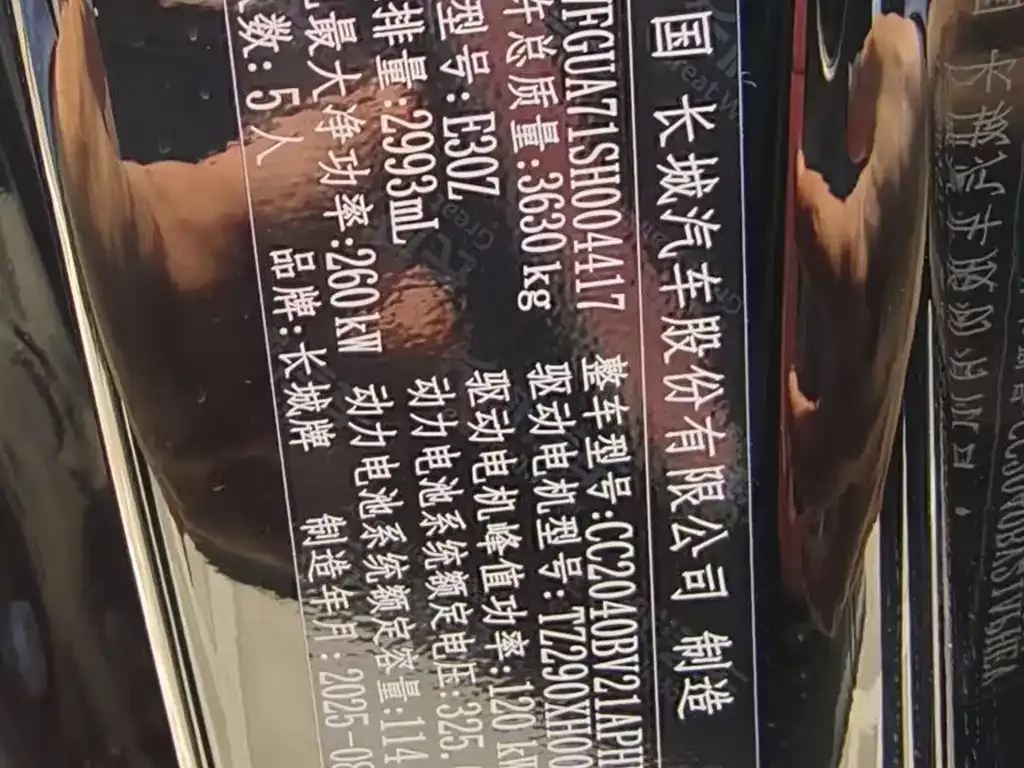 国 长城汽车股份有限公司 制造
EGUA71SH004417 整车型号:CC2040BV21APH
许总质量:3630kg 驱动电机型号:TZ290XH00
型号:E30Z 驱动电机峰值功率:120kW
排量:2993mL 动力电池系统额定电压:325.
最大净功率:260kW 动力电池系统额定容量:114
数:5人 品牌:长城牌 制造年月:2025-08